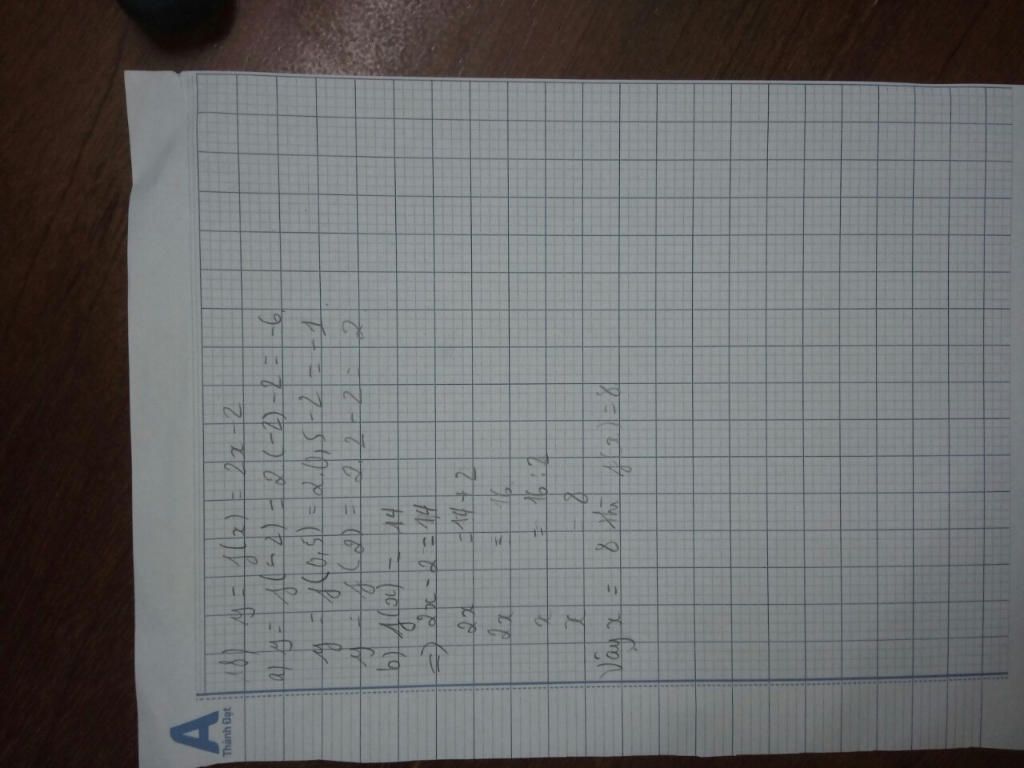 A
Thành Đạt
18) y = f(x) = 2x - 2
a) y = f(-2) = 2(-2) - 2 = -6
y = f(0,5) = 2.0,5 - 2 = -1
y = f(2) = 2.2 - 2 = 2
b) f(x) = 14
=> 2x - 2 = 14
2x = 14 + 2
2x = 16
x = 16 : 2
x = 8
Vậy x = 8 thì f(x) = 8